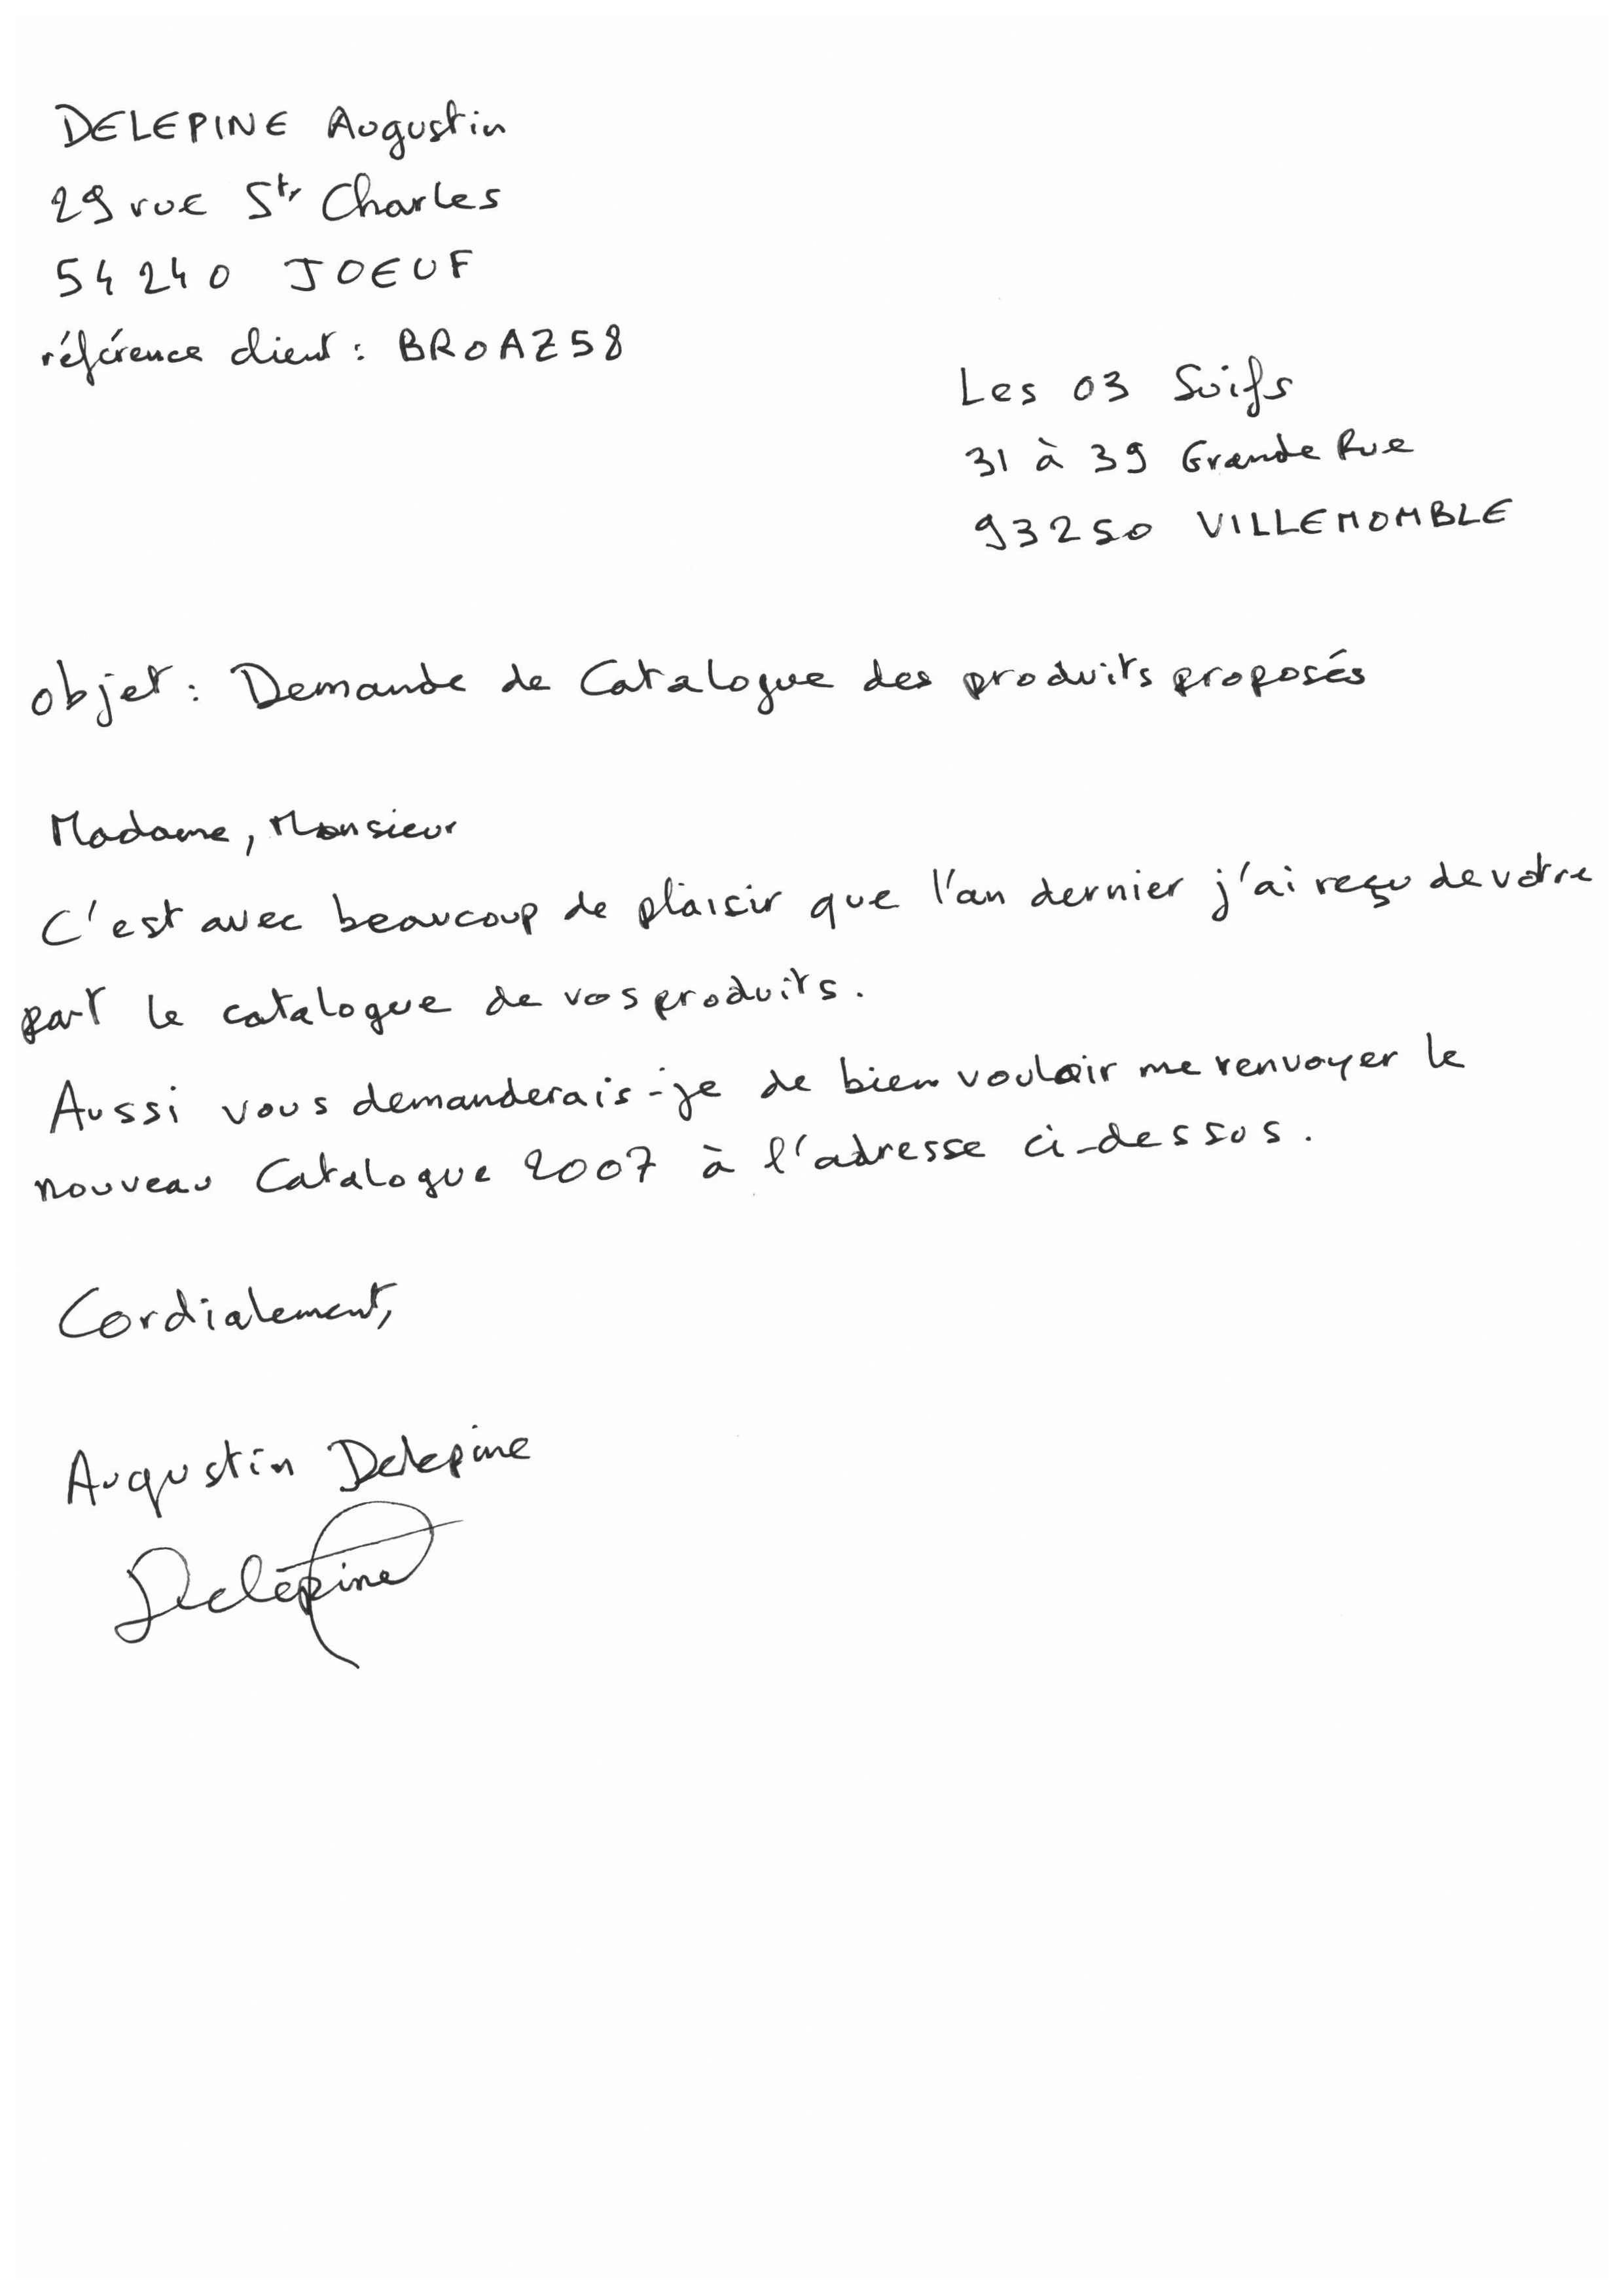 DELEPINE Augustin
29 rue St Charles
54240 JOEUF
référence client : BROAZ58
Les 03 Suifs
31 à 39 Grande Rue
93250 VILLEMOMBLE
objet : Demande de Catalogue des produits proposés
Madame, Monsieur
C'est avec beaucoup de plaisir que l'an dernier j'ai reçu de votre
part le catalogue de vos produits.
Aussi vous demanderais-je de bien vouloir me renvoyer le
nouveau Catalogue 2007 à l'adresse ci-dessus.
Cordialement,
Augustin Delepine
Delepine